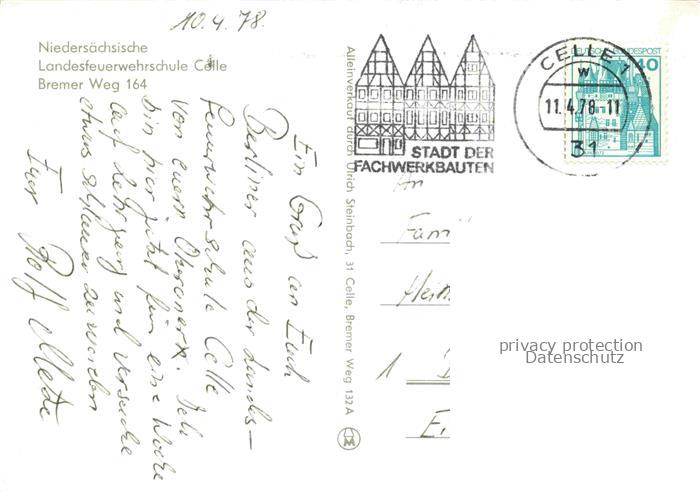 10.4.78.
Niedersächsische
Landesfeuerwehrschule Celle
Bremer Weg 164
Ein Gruß an Euch
Berliner aus der Landes-
feuerwehrschule Celle
von euern Ich
bin hier jetzt für eine Woche
auf Lehrgang und versuche
etwas schlauer zu werden
Euer Rolf
Alleinverkauf durch Ulrich Steinbach, 31 Celle, Bremer Weg 132A
STADT DER
FACHWERKBAUTEN
CELLE 1
w
11.4.78-11
31
DEUTSCHE BUNDESPOST
40
An
Fami
1
E.
privacy protection
Datenschutz